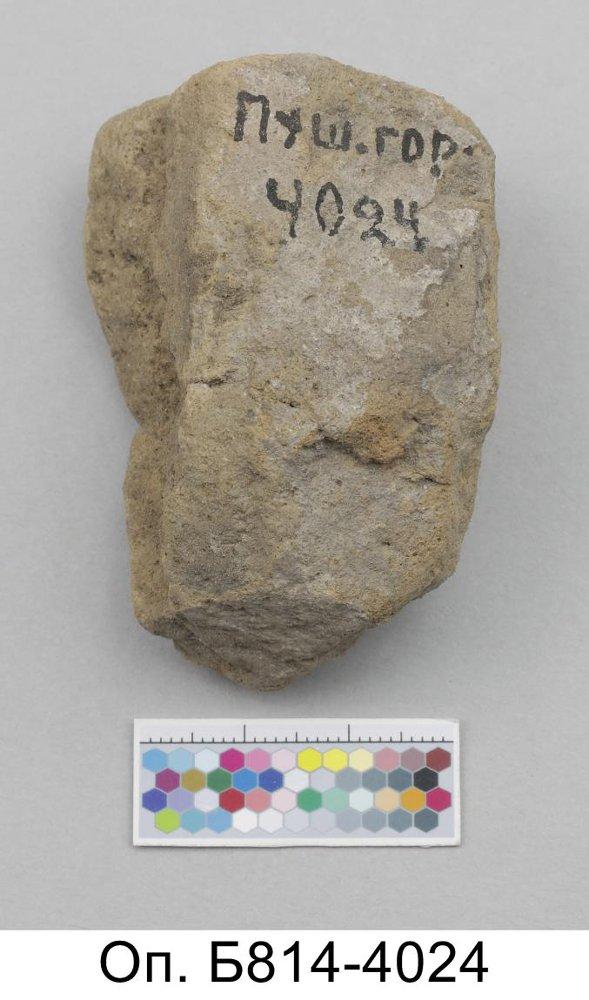 Пуш.гор.
4024
Оп. Б814-4024